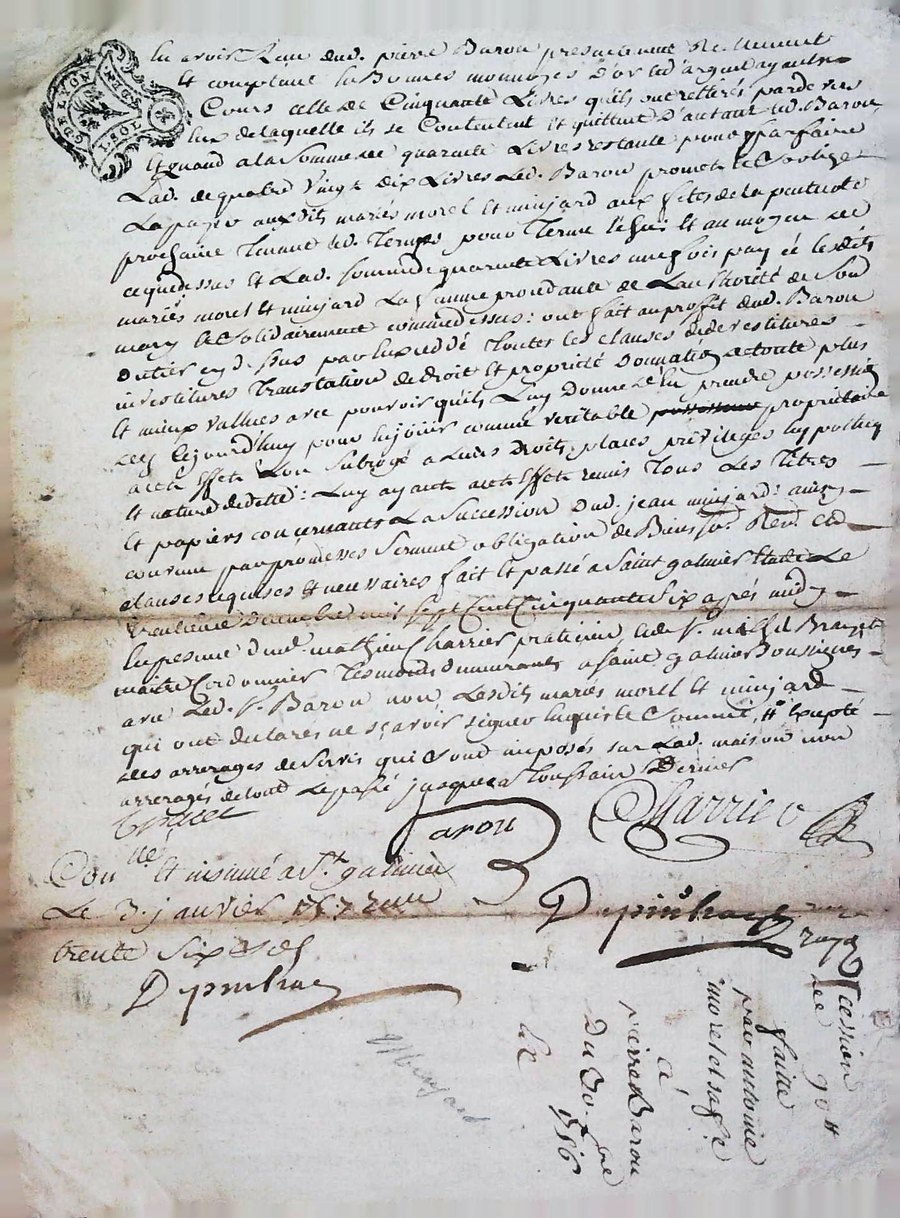 GDE LYON
1 SOL
avoir Receu dud. pierre Barou presentement Reellement
Et comptant en Bonnes monnoyes d'or et d'argent ayants
Cours celle de Cinquante Livres qu'ils ont retirés par devers
Eux de laquelle ils se Contentent Et quittent d'autant led. Barou
Et quand a la Somme de quarante Livres restante pour parfaire
Lad. de quatre Vingt dix Livres Led. Barou promet et s'oblige
La payer auxdits mariés morel Et minjard aux fetes de la pentecote
prochaine venant led. Terme pour Terme Echu Et au moyen de
ce que dessus Et Lad. somme de quarante Livres une fois payée Lesdits
mariés morel Et minjard La femme procedante de L'authorité de Son
mary Et Solidairement comme dessus: ont fait au profit dud. Barou
par Luy cedé Toutes les clauses de devestitures
investitures Translation de droit Et proprieté Donnation de toute plus
Et mieux vallues avec pouvoir qu'ils Luy Donne d'en prendre possession
des aujourd'huy pour en jouir comme veritable propriétaire
a cet effet L'on Subrogé a Leurs Droits, places privileges hypotheques
Et nature de dette: Luy ayants a cet Effet remis Tous Les Titres
Et papiers concernants La Succession dud. jean minjard: ainsy
convenu par promesses Serment obligation de Biens Ren. Et
clauses requises Et necessaires fait Et passé a Saint galmier Le
trentieme decembre mil Sept Cent Cinquante Six après midy
En presence dud. mathieu Charrier praticien Et de Sr.
maitre Cordonnier Tesmoins demeurants a Saint galmier Soussignés
avec Led. Sr. Barou non Lesdits mariés morel Et minjard
qui ont declarés ne sçavoir signer Enquis Et Sommé, Excepté
des arrerages de Servis qui Sont imposés sur Lad. maison non
arrerages de tout Le passé jusques a Toussaint Dernier
Barou
Charrier
Con.lle Et insinué a St. galmier
Le 3. janvier 1757 Receu
trente Six sols
Depinhac
Depinhac
Minjard
cession
90 tt
faitte
par antoine
morel et sa fe
a
pierre Barou
Du 30. Xbre
1756